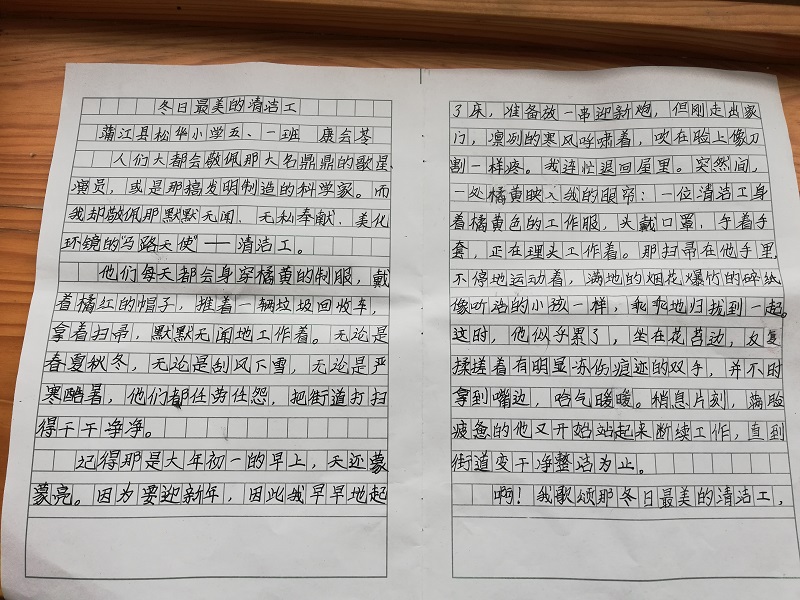 冬日最美的清洁工
蒲江县松华小学五、一班 康会苓
人们大都会敬佩那大名鼎鼎的歌星、
演员，或是那搞发明制造的科学家。而
我却敬佩那默默无闻、无私奉献、美化
环镜的"马路天使"——清洁工。
他们每天都会身穿橘黄的制服，戴
着橘红的帽子，推着一辆垃圾回收车，
拿着扫帚，默默无闻地工作着。无论是
春夏秋冬，无论是刮风下雪，无论是严
寒酷暑，他们都任劳任怨，把街道打扫
得干干净净。
记得那是大年初一的早上，天还蒙
蒙亮。因为要迎新年，因此我早早地起
了床，准备放一串迎新炮，但刚走出家
门，凛冽的寒风呼啸着，吹在脸上像刀
割一样疼。我连忙退回屋里。突然间，
一处橘黄映入我的眼帘：一位清洁工身
着橘黄色的工作服，头戴口罩，手着手
套，正在埋头工作着。那扫帚在他手里
不停地运动着，满地的烟花爆竹的碎纸
像听话的小孩一样，乖乖地归拢到一起。
这时，他似乎累了，坐在花台边，反复
揉搓着有明显冻伤痕迹的双手，并不时
拿到嘴边，哈气暖暖。稍息片刻，满脸
疲惫的他又开始站起来断续工作，直到
街道变干净整洁为止。
啊！我歌颂那冬日最美的清洁工，